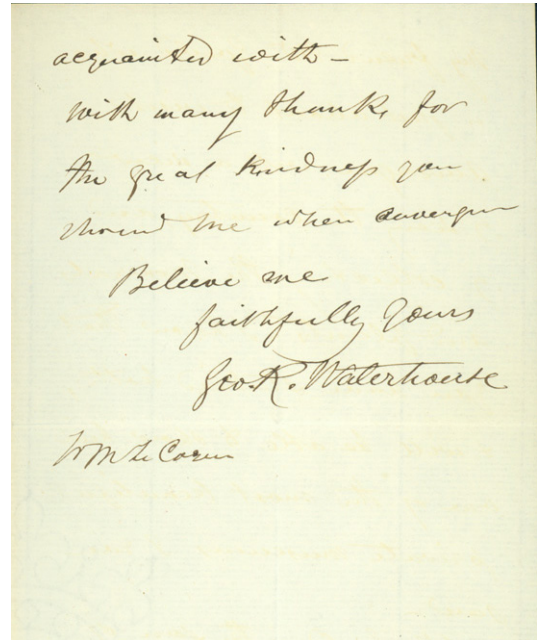 acquainted with –
With many thanks for
the great kindness you
showed me when
Believe me
faithfully yours
Geo. R. Waterhouse